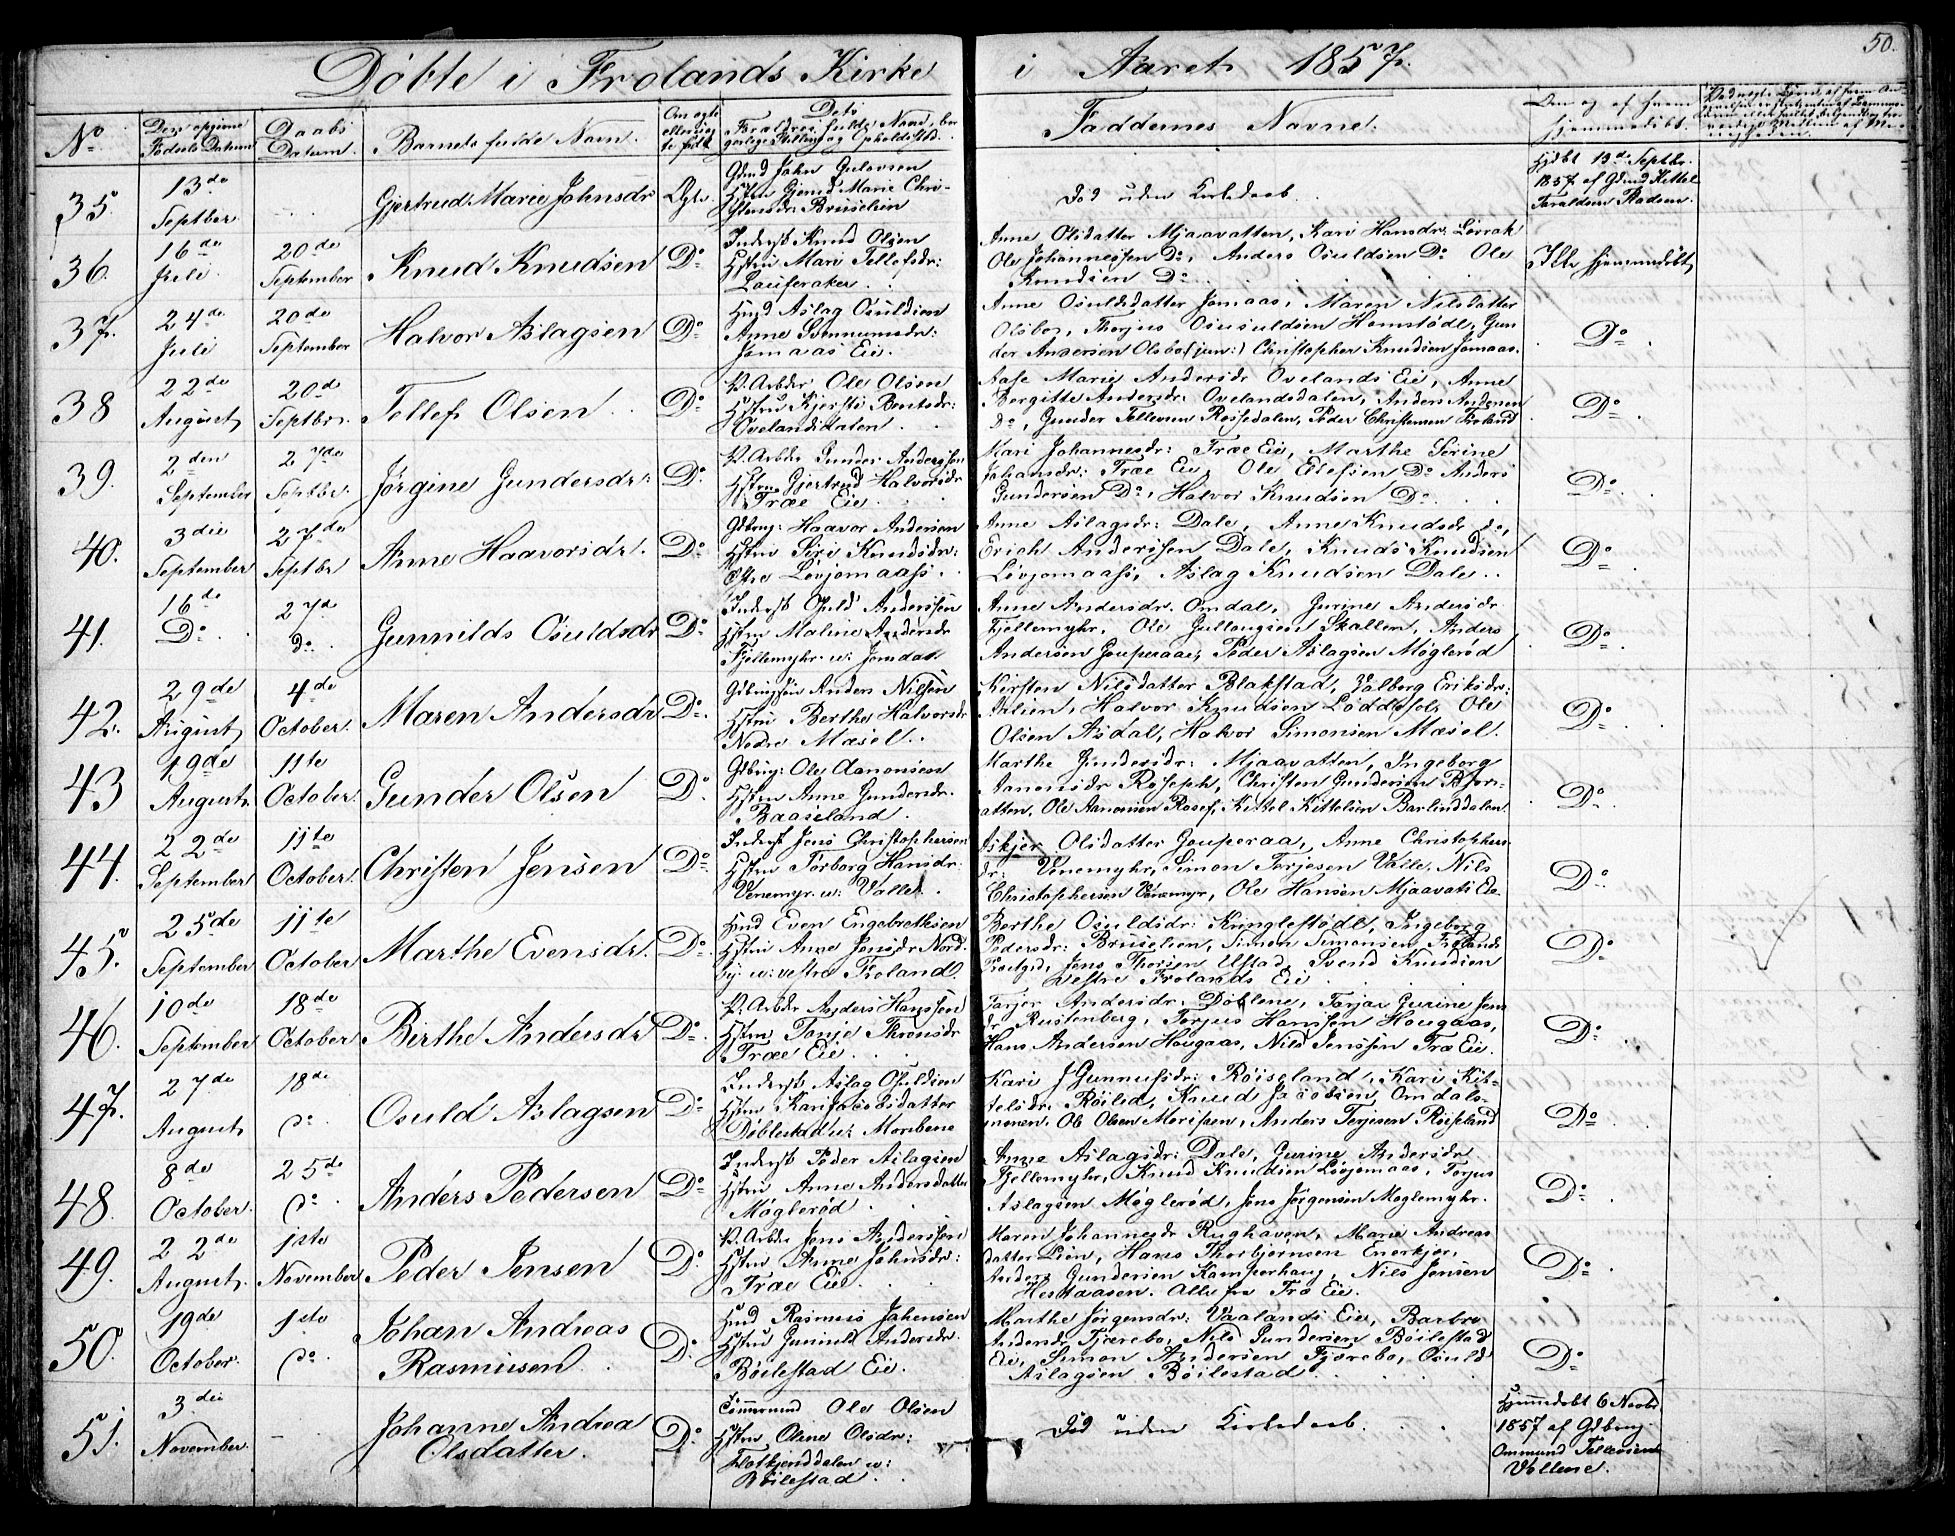 Döbte i Frolands Kirke i Aaret 1857.
50.
No.
Daabs
Datum.
Barnets fulde Navn.
Faddernes Navne.
35.
13de
Septber.
Gjertrud Marie Johnsdr
Gdmd John
Hstru Gjemd Marie Chri-
stensdr: Bruselien
Död uden Kirkedaab.
Hjdbt 13de Septbr.
1857 af Gdmd Kittel
Taraldsen Stadsen.
36.
16de
Juli
20de
September
Knud Knudsen
Do
Inderst Knud Olsen
Hstru Mari Tellefsdr:
Lauveraker.
Anne Olsdatter Mjaavatten, Kari Hansdr. Lövrak
Ole Johannessen Do, Anders Osuldsen Do Ole
Knudsen Do
Ikke hjemmedöbt
37.
24de
Juli
20de
September
Halvor Aslagsen
Do
Hmd Aslag Osuldsen
Anne
Jomaas Eie.
Anne Osuldsdatter Jomaas, Maren Nilsdatter
Olsbo, Thorjus Osuldsen Hemstödl, Gun
der Andersen Olsbo (jun:) Christopher Knudsen Jomaas.
Do
38
22de
August
20de
Septbr.
Tellef Olsen
Do
P. Arbdr Ole Olsen
Hstru Kjersti Berntsdr:
Ovelandsdalen.
Aase Marie Andersdr Ovelands Eie, Anne
Bergitte Andersdr: Ovelandsdalen, Anders Andersen
Do, Gunder Tellevsen Rossedalen, Peder Christensen Froland
Do
39.
2den
September
27de
Septbr.
Jörgine Gundersdr:
Do
P. Arbdr Gunder Anderssen
Hstru Gjertrud Halvorsdr
Træe Eie
Kari Johannesdr: Træe Eie, Marthe Serine
Johansdr: Træe Eie, Ole Ellefsen Do Anders
Gundersen Do, Halvor Knudsen Do
Do
40.
3die
September
27de
Septbr
Anne Haavorsdr.
Do
Gdbrug: Haavor Andersen
Hstru Siri Knudsdr:
Östre Lövjomaass.
Anne Aslagsdr: Dale, Anne Knudsdr do,
Erich Anderssen Dale, Knud Knudsen
Lövjomaass, Aslag Knudsen Dale.
Do
41.
16de
Do
27de
do.
Gunnilds Osuldsdr
Do
Inderst Osuld Anderssen
Hstru Maline Andersdr
Fjellemyhr u: Jomdal.
Anne Andersdr. Omdal, Gurine Andersdr
Fjellemyhr, Ole Gulleugsen Skallen, Anders
Andersen Gouperaae, Peder Aslagsen Mögleröd
Do
42.
29de
August
4de
October.
Maren Andersdr
Do
Anders Nilssen
Hstru Berthe Halvorsdr
Nedre Mæsel.
Kirsten Nilsdatter Blakstad, Valborg Eriksdr:
Halvor Knudsen Löddesöl, Ole
Olsen Asdal, Halvor Simonsen Mæsel.
Do
43
19de
August
11te
October.
Gunder Olsen
Do
Gdbrug: Ole Aanonsen
Hstru Anne Gundersdr.
Baaseland.
Marthe Gundersdr: Mjaavatten, Ingeborg
Aanonsdr Roseph, Christen Gundersen Bjor-
vatten, Ole Aanonsen Rosef, Kittel Kittelsen Barlinddalen.
Do
44.
22de
September
11te
October.
Christen Jensen
Do
Inderst Jens Christophersen
Hstru Torborg Hansdr:
Venemyr u: Valle.
Askjer Olsdatter Gouperaa, Anne Christophers
dr: Venemyhr, Simon Terjesen Valle, Nils
Christophersen Venemyr, Ole Hansen Mjaavatt Eie
Do
45.
25de
September
11te
October
Marthe Evensdr.
Do
Hmd Even Engebrethsen
Hstru Anne Jensdr Nord-
by u: vestre Froland.
Berthe Osuldsdr: Kringlestödl, Ingeborg
Pedersdr: Bruselien, Simon Simonsen Frolands
Prestgd, Jens Thorsen Ulstad, Svend Knudsen
vestre Frolands Eie
Do
46.
10de
September
18de
October
Birthe Andersdr
Do
P. Arbdr Anders Hanssen
Hstru Tonje
Træe Eie
Andersdr. Döblene, Gurine Jens
dr Rustenberg, Terjus Hanssen Hougaas,
Hans Andersen Hougaas, Nils Jenssen Træ Eie.
Do
47.
27de
August
18de
do
Osuld Aslagsen
Do
Inderst Aslag Osuldsen
Hstru Kari Jacobsdatter
Döblestad u: Morebene
Kari Gunnufsdr: Röiseland, Kari Kit-
telsdr. Röilid, Knud Jacobsen Omdals-
moren, Ole Olsen Morisen, Anders Terjesen Röiseland
Do
48.
8de
October.
25de
do
Anders Pedersen
Do
Inderst Peder Aslagsen
Hstru Anne Andersdatter
Möglerød
Anne Aslagsdr: Dale, Gurine Andersdr
Fjellemyhr, Knud Knudsen Lövjomaas, Terjus
Aslagsen Möglerød, Jens Jörgensen Moglemyhr.
Do
49.
22de
August.
1ste
November
Peder Jensen
Do
P. Arbdr Jens Anderssen
Hstru Anne Johnsdr:
Træe Eie
Maren Johannesdr Rughaven, Marie Andreas
datter Lien, Hans Thorbjornsen Enerkjer,
Anders Gundersen Kamperhaug, Nils Jensen
Hestaasen. Alle fra Træ Eie.
Do
50.
19de
October.
1ste
do
Johan Andreas
Rasmusen
Do
Hmd Rasmus Johensen
Hstru Gunild Andersdr.
Böilestad Eie.
Marthe Jörgensdr: Vaalands Eie, Barbro
Andersdr Fjærebo, Nils Gundersen Böilestad
Eie, Simon Andersen Fjærebo, Osuld
Aslagsen Böilestad
Do
51.
3die
November.
Johanne Andrea
Olsdatter.
Do
Tömmermd Ole Olsen
Hstru Olene Olsdr:
u:
Böilestad
Död uden Kirkedaab.
Hjemmedöbt 6 Novbr
1857 af Gdbrug
Ommund Tellevsen
Vollene.